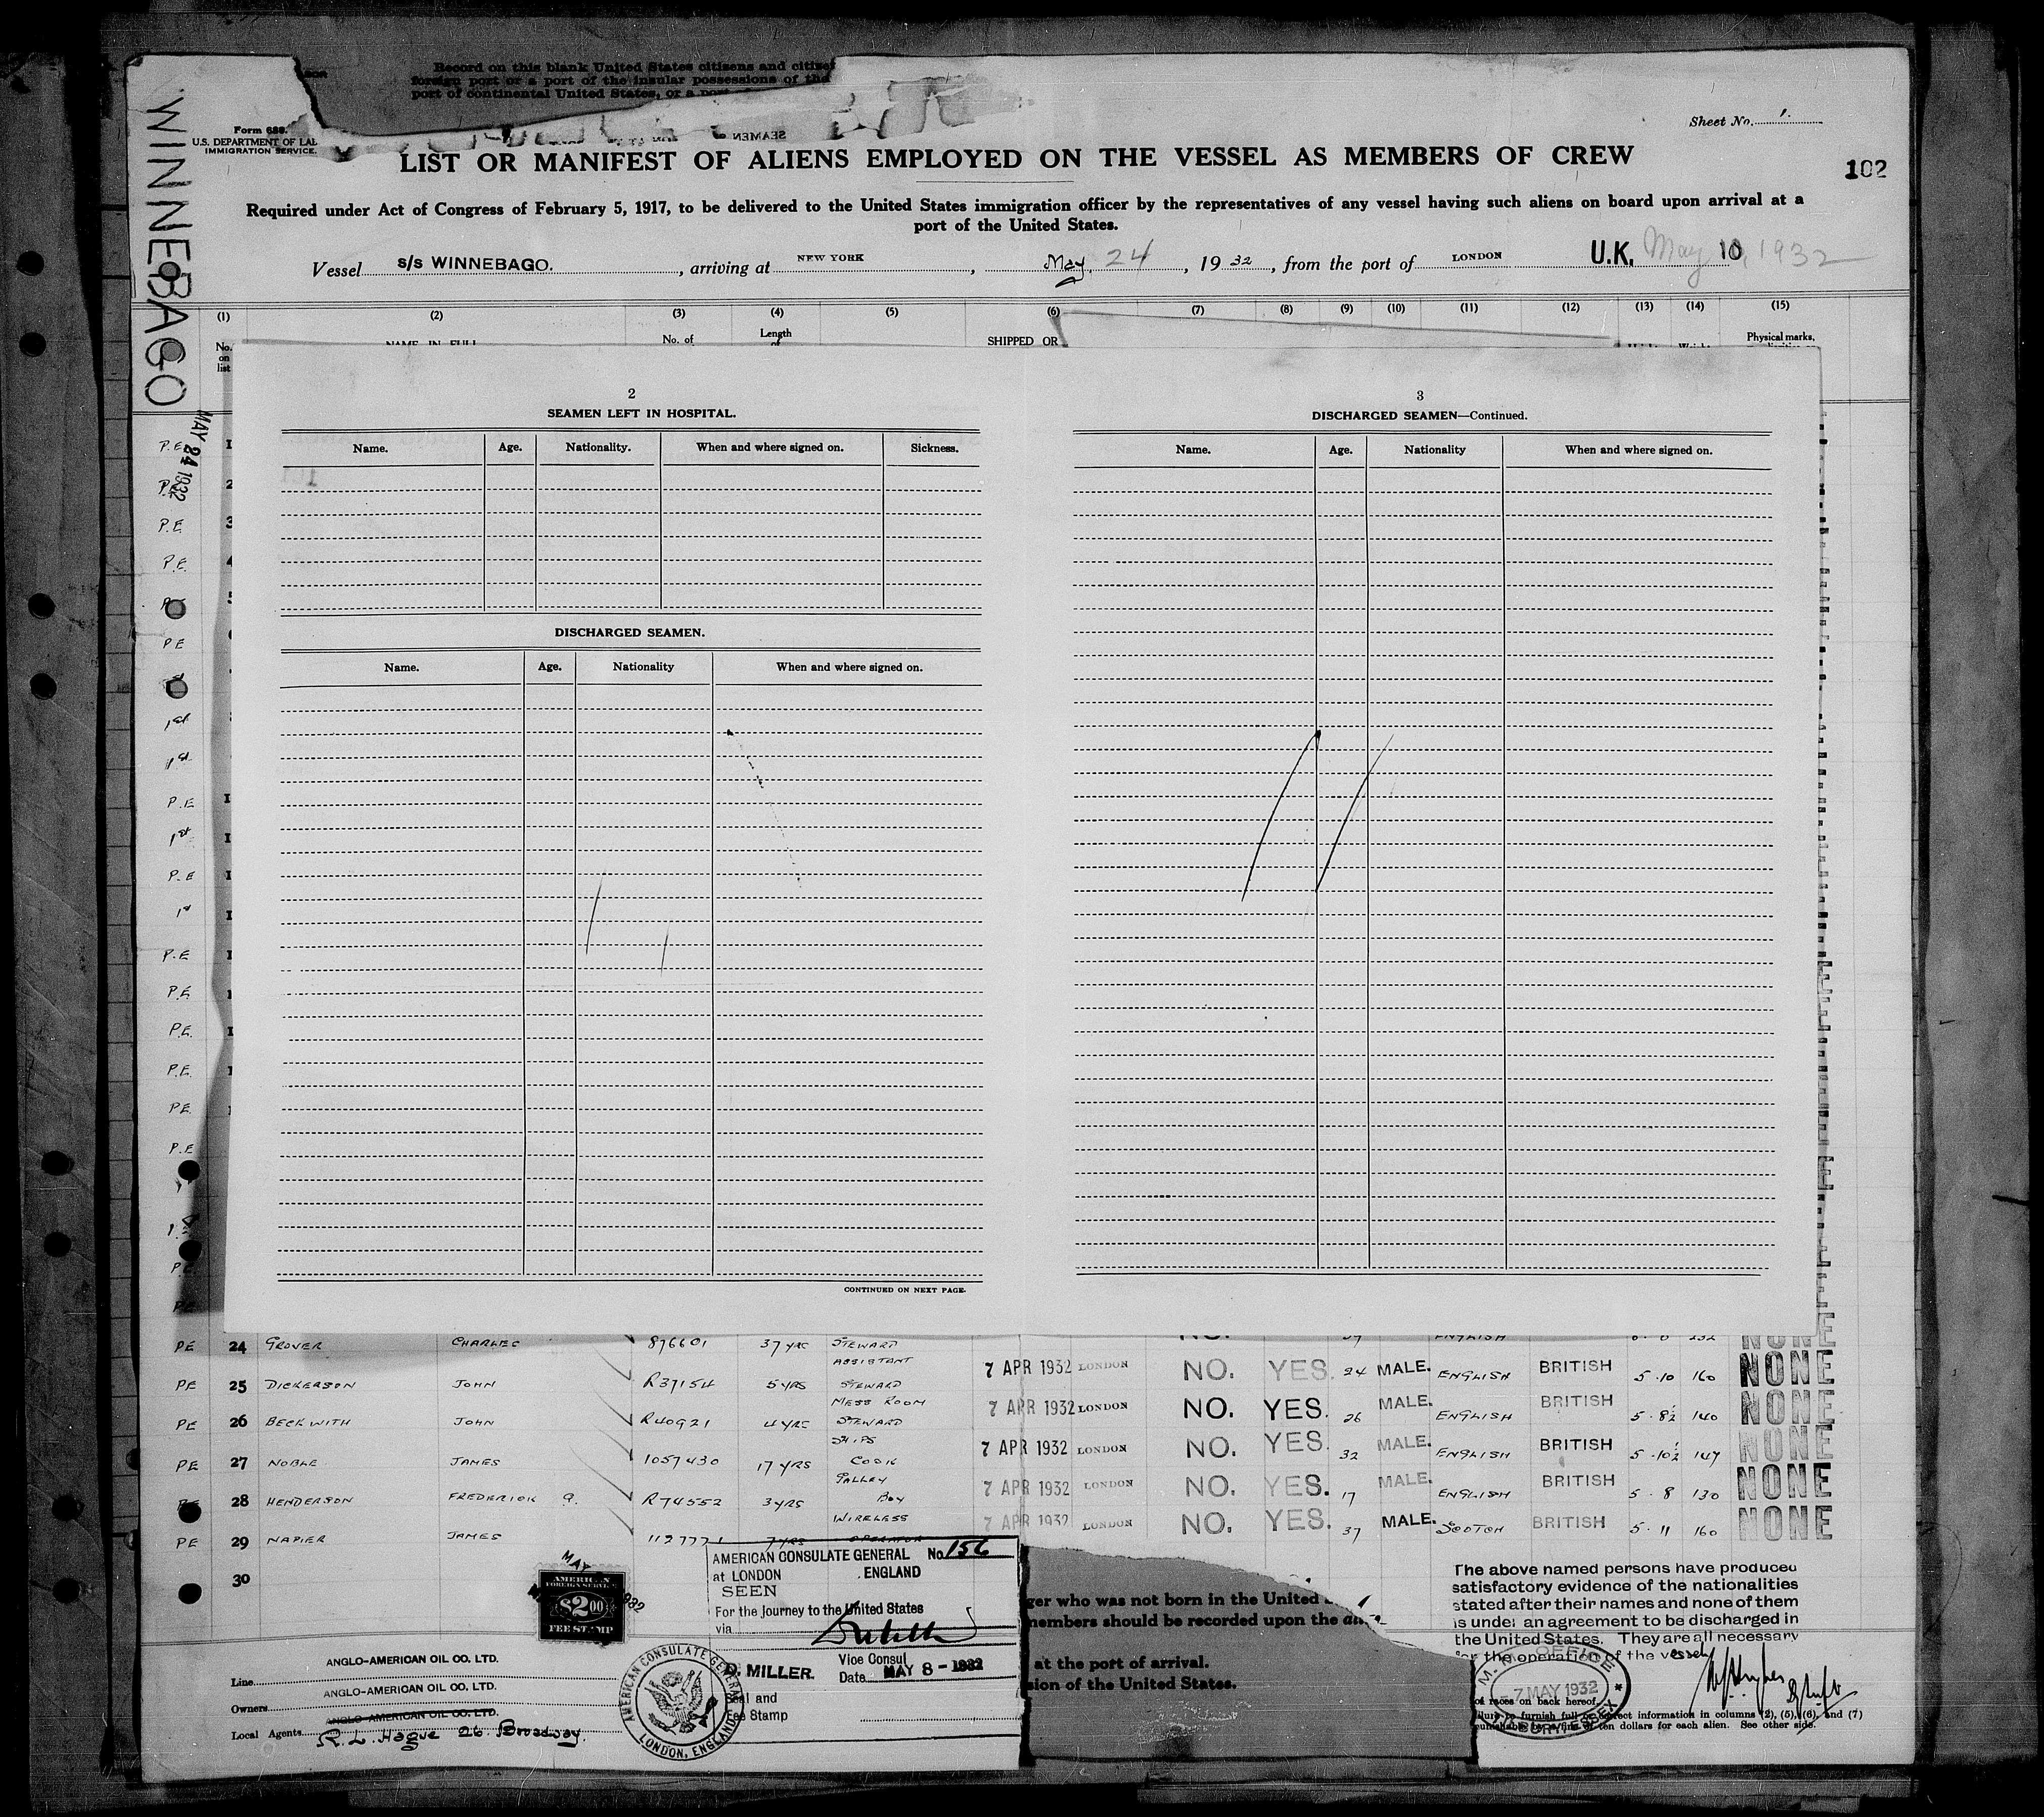 Record on this blank United States citizens and citize
foreign port or a port of the insular possessions of the
port of continental United States, or a
SEAMEN
Sheet No. 1.
Form 689.
U.S. DEPARTMENT OF LAB
IMMIGRATION SERVICE.
LIST OR MANIFEST OF ALIENS EMPLOYED ON THE VESSEL AS MEMBERS OF CREW
102
Required under Act of Congress of February 5, 1917, to be delivered to the United States immigration officer by the representatives of any vessel having such aliens on board upon arrival at a
port of the United States.
Vessel S/S WINNEBAGO. , arriving at NEW YORK , May. 24 , 19 32 , from the port of LONDON U.K. May 10, 1932
WINNEBAGO
MAY 24 1932
(1) (2) (3) (4) (5) (6) (7) (8) (9) (10) (11) (12) (13) (14) (15)
No. on list NAME IN FULL No. of Length of SHIPPED OR Physical marks,
2
SEAMEN LEFT IN HOSPITAL.
Name. Age. Nationality. When and where signed on. Sickness.
DISCHARGED SEAMEN.
Name. Age. Nationality When and where signed on.
CONTINUED ON NEXT PAGE.
3
DISCHARGED SEAMEN—Continued.
Name. Age. Nationality When and where signed on.
P.E
P.E
P.E
P.E.
PE
1st
1st
P.E
1st
P.E
1st
P.E
P.E
P.E.
P.E.
PE
P.E
PE 24 GROVER CHARLES 876601 37 YRS STEWARD
PE 25 DICKERSON JOHN R37154 5 YRS ASSISTANT STEWARD 7 APR 1932 LONDON NO. YES. 24 MALE. ENGLISH BRITISH 5.10 160 NONE
PE 26 BECKWITH JOHN R40921 4 YRS MESS ROOM STEWARD 7 APR 1932 LONDON NO. YES. 26 MALE. ENGLISH BRITISH 5.8½ 140 NONE
PE 27 NOBLE JAMES 1057430 17 YRS SHIPS COOK 7 APR 1932 LONDON NO. YES. 32 MALE. ENGLISH BRITISH 5.10½ 147 NONE
PE 28 HENDERSON FREDERICK G. R74552 3 YRS GALLEY BOY 7 APR 1932 LONDON NO. YES. 17 MALE. ENGLISH BRITISH 5.8 130 NONE
PE 29 NAPIER JAMES 1127771 7 YRS WIRELESS OPERATOR 7 APR 1932 LONDON NO. YES. 37 MALE. SCOTCH BRITISH 5.11 160 NONE
30
AMERICAN
FOREIGN SERVICE
$2.00
FEE STAMP
AMERICAN CONSULATE GENERAL No. 156
at LONDON ENGLAND
SEEN
For the Journey to the United States
via
Vice Consul
D. MILLER. Date MAY 8 - 1932
Seal and
Fee Stamp
AMERICAN CONSULATE GENERAL
LONDON, ENGLAND
ger who was not born in the United
members should be recorded upon the
at the port of arrival.
sion of the United States.
The above named persons have produced
satisfactory evidence of the nationalities
stated after their names and none of them
is under an agreement to be discharged in
the United States. They are all necessary
for the operation of the vessel
7 MAY 1932
of races on back hereof
failure to furnish full or correct information in columns (2), (5), (6), and (7)
punishable by a fine of ten dollars for each alien. See other side.
Line ANGLO-AMERICAN OIL CO. LTD.
Owners ANGLO-AMERICAN OIL CO. LTD.
Local Agents ANGLO-AMERICAN OIL CO. LTD.
R. L. Hague 26. Broadway.